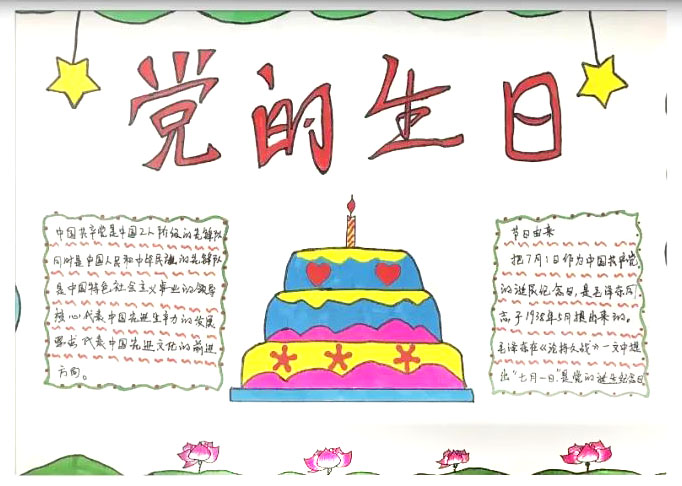 党的生日
中国共产党是中国工人阶级的先锋队
同时是中国人民和中华民族的先锋队
是中国特色社会主义事业的领导
核心代表中国先进生产力的发展
要求代表中国先进文化的前进
方向。
节日由来
把7月1日作为中国共产党
的诞辰纪念日,是毛泽东同
志于1938年5月提出来的。
毛泽东在《论持久战》一文中提
出"七月一日"是党的诞生纪念日